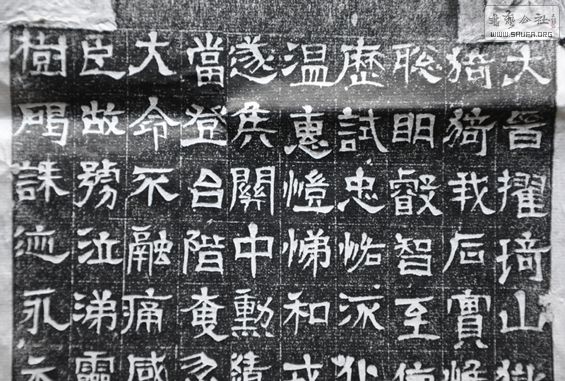 大晉擢琦山
猗猗我后實
聡明叡智至
歷試忠恪
温惠愷悌和戎
遂侯關中勳績
當登台階奄忽
大命不融痛感
臣故號泣涕靈
樹碑誄迹永
WWW.SHUFA.ORG